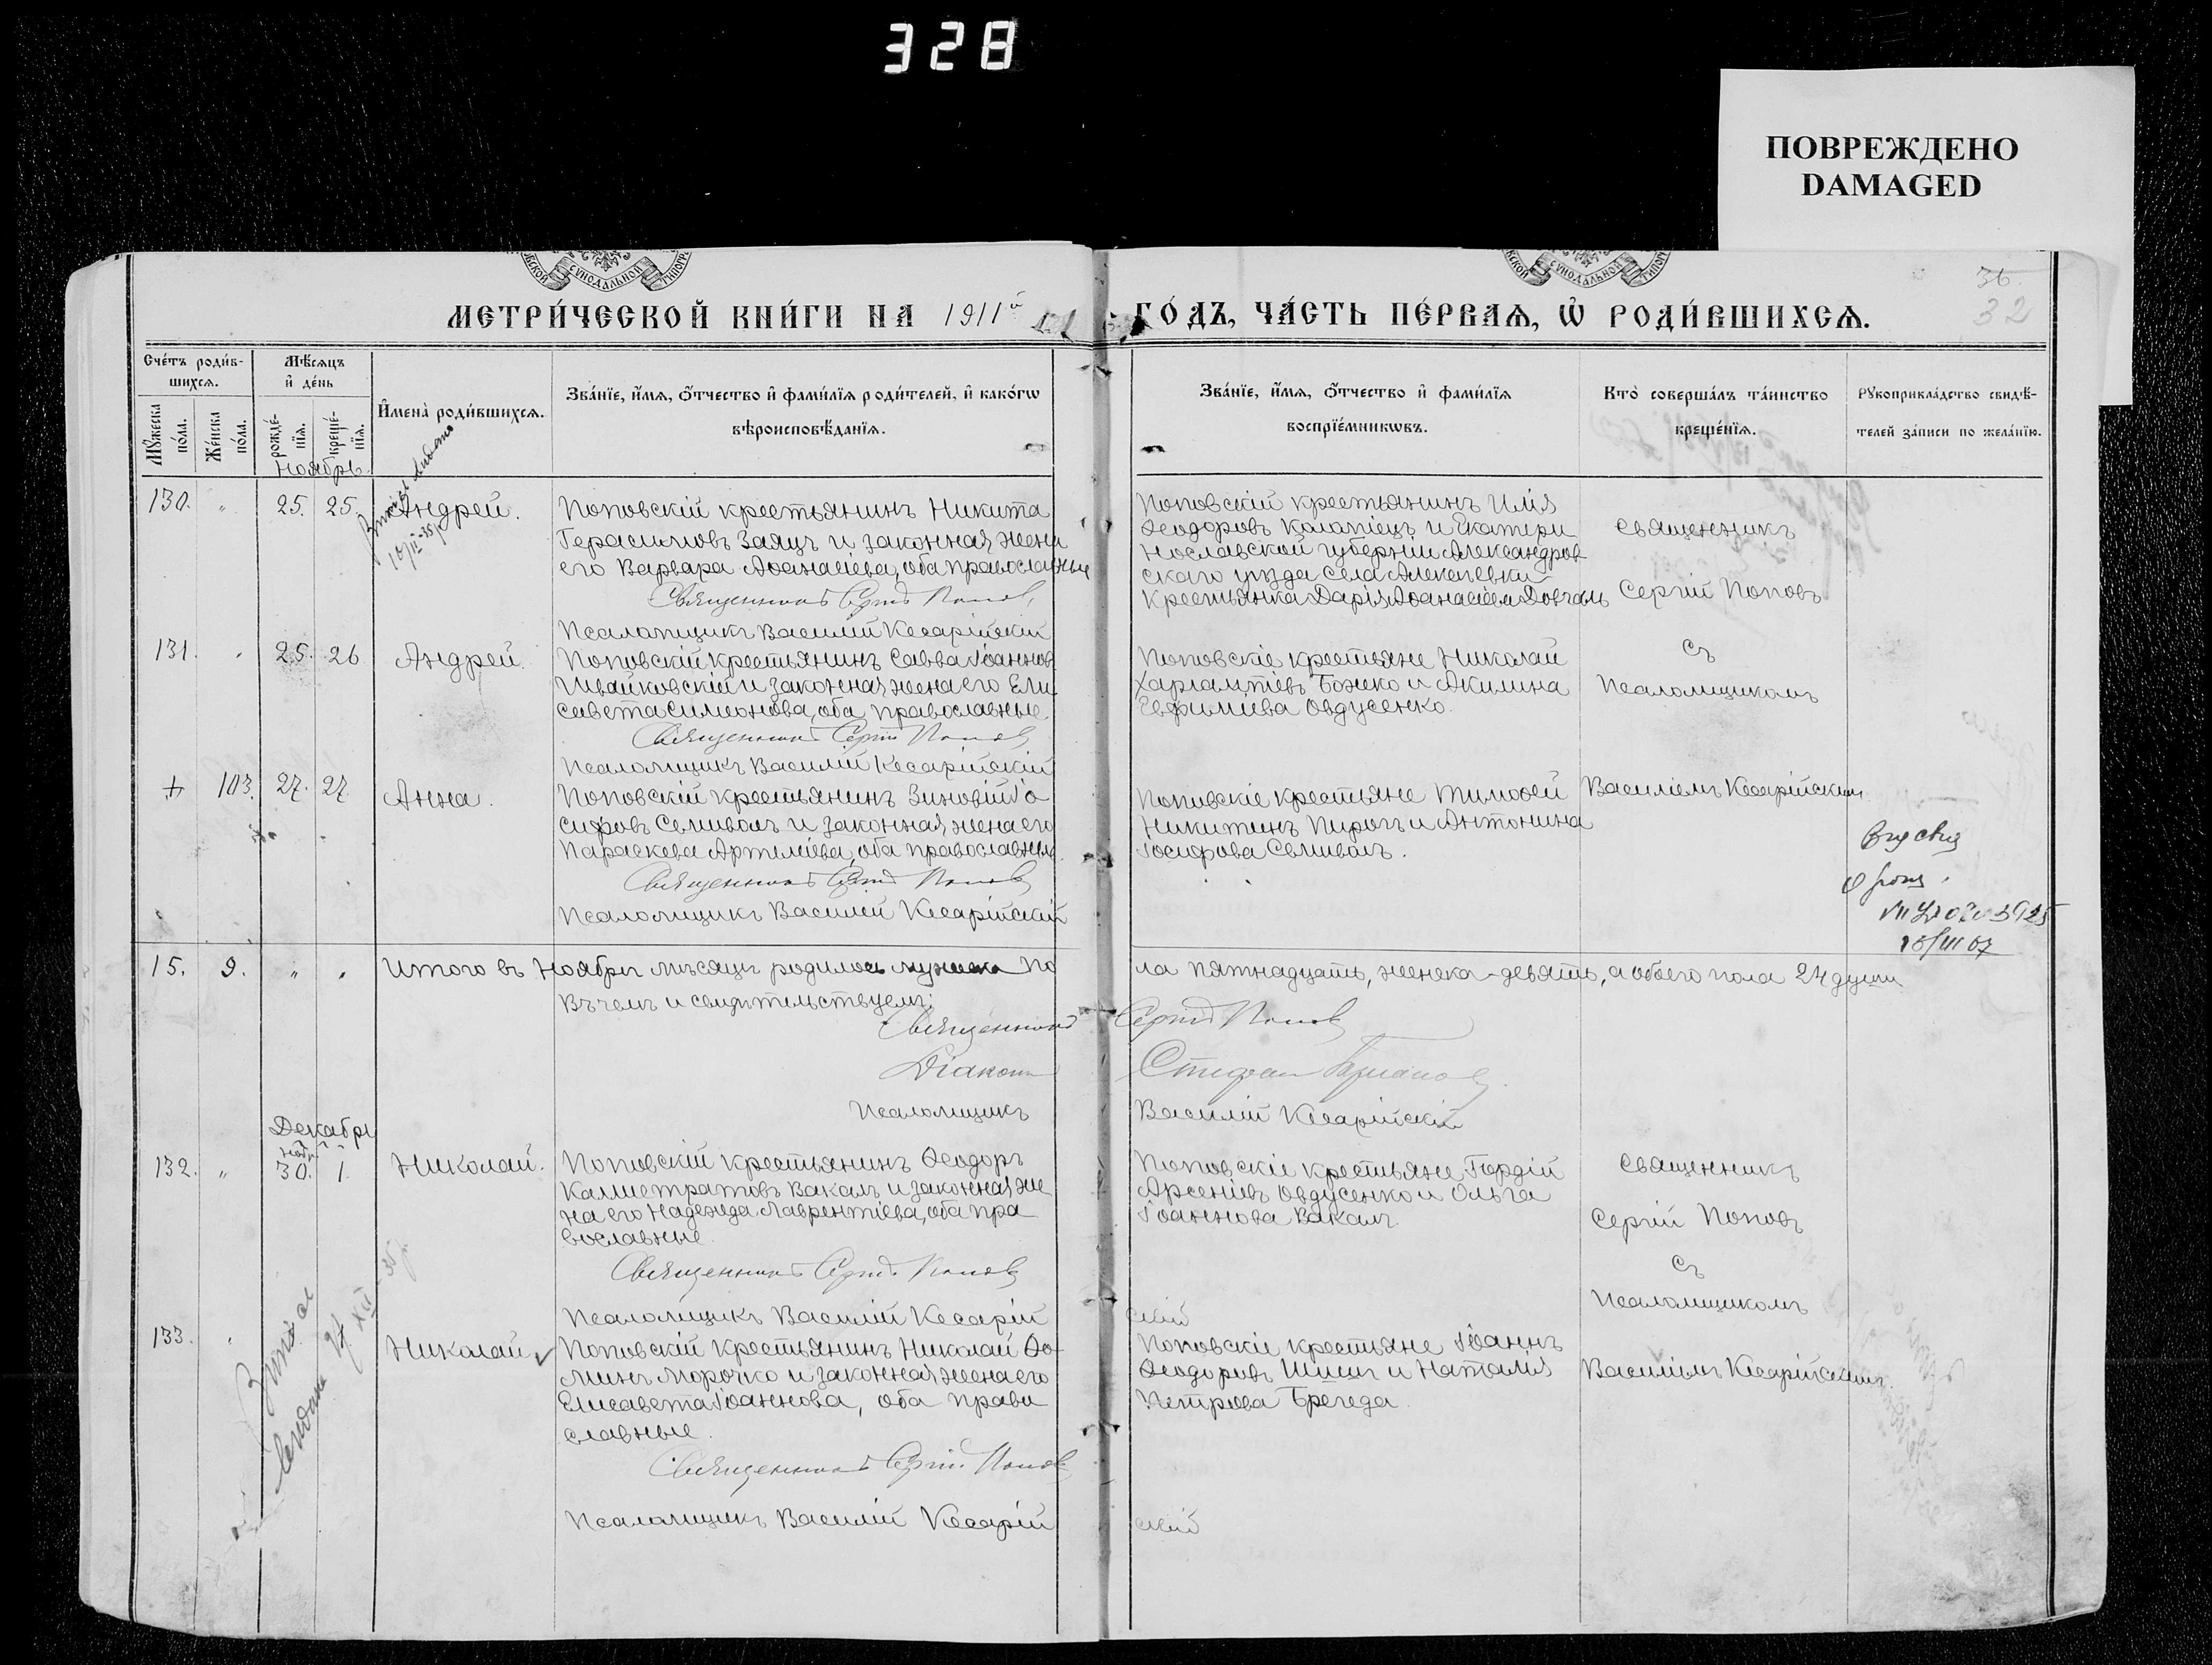 328
ПОВРЕЖДЕНО
DAMAGED
36
32
МЕТРИ́ЧЕСКОЙ КНИ́ГИ НА 1911й ГО́ДЪ, ЧА́СТЬ ПЕ́РВАЯ, Ѡ РОДИ́ВШИХСЯ.
Сче́тъ роди́в-
шихся.
Мѣ́сяцъ
и де́нь
Мꙋ́жеска по́ла.
Же́нска по́ла.
рожде́-
нїя.
креще́-
нїя.
Имена̀ роди́вшихся.
Зва́нїе, и́мя, ѻ́тчество и фами́лїя роди́телей, и како́гѡ
вѣроисповѣ́данїя.
Зва́нїе, и́мя, ѻ́тчество и фами́лїя
воспрїе́мникѡвъ.
Кто̀ соверша́лъ та́инство
креще́нїя.
Рꙋкоприкла́дство свидѣ́-
телей за́писи по жела́нїю.
Ноябрь.
130. " 25. 25. Андрей.
Поповскій крестьянинъ Никита
Герасимовъ Заяцъ и законная жена
его Варвара Аѳанасіева, оба православные
Священникъ Сергій Поповъ
Псаломщикъ Василій Кесарійскій
Поповскій крестьянинъ Илія
Ѳеодоровъ Коломіецъ и Екатери
нославской губерніи Александров
скаго уѣзда села Алексеевки
крестьянка Дарія Аѳанасіева Довгань
Священникъ
Сергій Поповъ
131. " 25. 26 Андрей.
Поповскій крестьянинъ Савва Іоаннов
Швайковскій и законная жена его Ели
савета Симеонова, оба православные.
Священникъ Сергій Поповъ
Псаломщикъ Василій Кесарійскій
Поповскіе крестьяне Николай
Харлампіевъ Божко и Акилина
Евфиміева Овдусенко.
съ
Псаломщикомъ
103. 27. 27. Анна.
Поповскій крестьянинъ Зиновій Іо
сифовъ Семиволъ и законная жена его
Параскева Артеміева, оба православные
Священникъ Сергій Поповъ
Псаломщикъ Василій Кесарійскій
Поповскіе крестьяне Тимоѳей
Никитинъ Пирогъ и Антонина
Іосифова Семиволъ.
Василіемъ Кесарійскимъ
15. 9. " " Итого въ Ноябрѣ мѣсяцѣ родилось мужска по
ла пятнадцать, женска-девять, а обоего пола 24 души
Въ чемъ и свидѣтельствуемъ:
Священникъ Сергій Поповъ
Діаконъ Стефан
Псаломщикъ Василій Кесарійскій
Декабрь
Нояб.
132. " 30. 1. Николай.
Поповскій крестьянинъ Ѳеодоръ
Каллистратовъ Вакалъ и законная же
на его Надежда Лаврентіева, оба пра
вославные.
Священникъ Сергій Поповъ
Псаломщикъ Василій Кесарій
скій
Поповскіе крестьяне Гордій
Арсеніевъ Овдусенко и Ольга
Іоаннова Вакалъ.
Священникъ
Сергій Поповъ
съ
Псаломщикомъ
133. " Николай
Поповскій крестьянинъ Николай Ѳо
минъ Морочко и законная жена его
Елисавета Іоаннова, оба право
славные.
Священникъ Сергій Поповъ
Псаломщикъ Василій Кесарій
скій
Поповскіе крестьяне Іоаннъ
Ѳеодоровъ Шишъ и Наталія
Петрова Брегеда.
Василіемъ Кесарійскимъ.